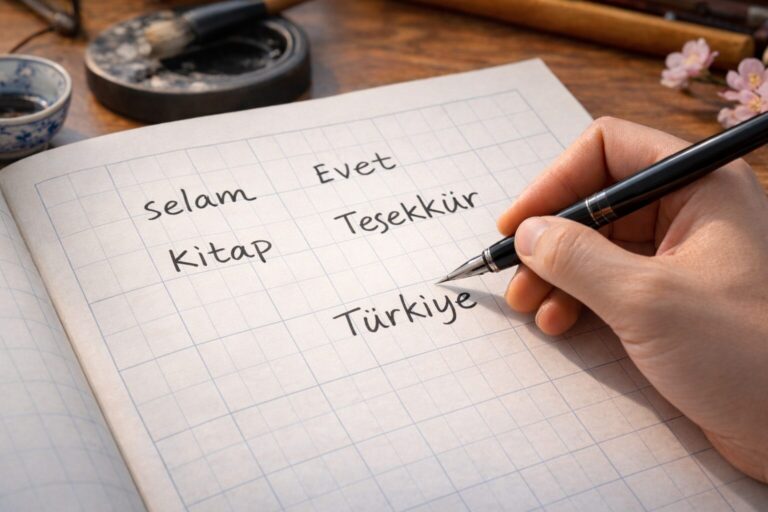 selam Evet
Kitap Teşekkür
Türkiye